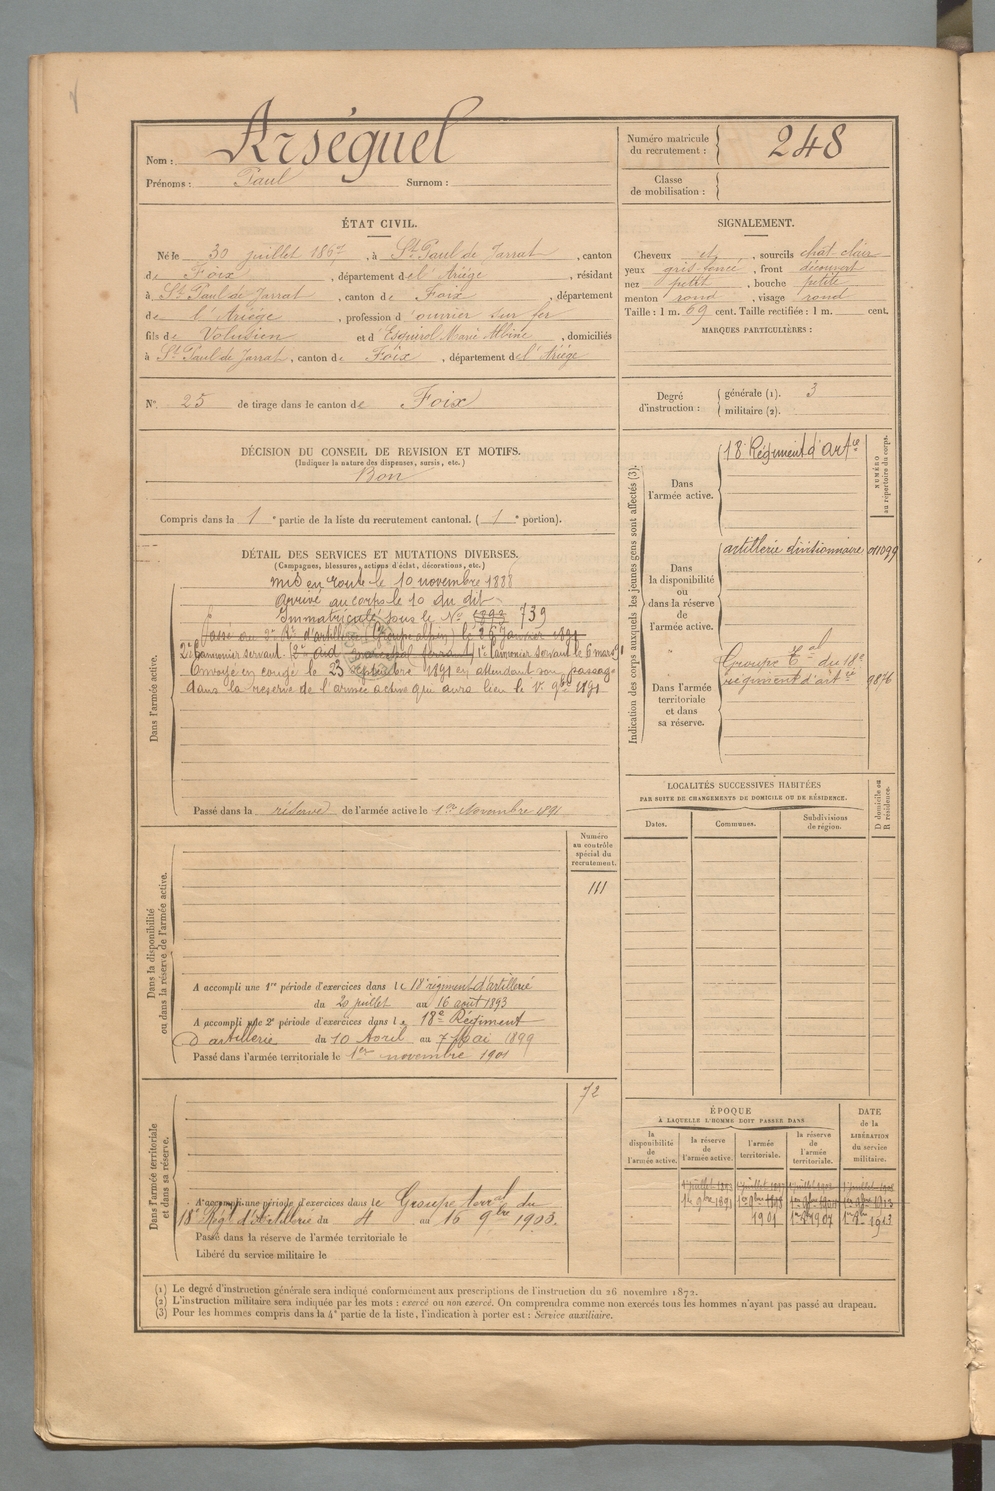 Nom : Arséguel
Prénoms : Paul Surnom :
Numéro matricule du recrutement : 248
Classe de mobilisation :
ÉTAT CIVIL.
Né le 30 juillet 1867, à St Paul de Jarrat, canton
de Foix, département de l'Ariège, résidant
à St Paul de Jarrat, canton de Foix, département
de l'Ariège, profession d'ouvrier sur fer
fils de Volusien et d'Esquirol Marie Albine, domiciliés
à St Paul de Jarrat, canton de Foix, département de l'Ariège
SIGNALEMENT.
Cheveux et, sourcils chat. clair
yeux gris foncé, front découvert
nez petit, bouche petite
menton rond, visage rond
Taille : 1 m. 69 cent. Taille rectifiée : 1 m. cent.
MARQUES PARTICULIÈRES :
N° 25 de tirage dans le canton de Foix
Degré d'instruction : générale (1). 3
militaire (2).
DÉCISION DU CONSEIL DE REVISION ET MOTIFS.
(Indiquer la nature des dispenses, sursis, etc.)
Bon
Compris dans la 1e partie de la liste du recrutement cantonal. (1e portion).
Indication des corps auxquels les jeunes gens sont affectés (3).
NUMÉRO au répertoire du corps.
Dans l'armée active.
18e Régiment d'artie
Dans la disponibilité ou dans la réserve de l'armée active.
artillerie divisionnaire 011099
Dans l'armée territoriale et dans sa réserve.
Groupe Tal du 18e
régiment d'artie 9876
DÉTAIL DES SERVICES ET MUTATIONS DIVERSES.
(Campagnes, blessures, actions d'éclat, décorations, etc.)
Dans l'armée active.
Mis en route le 10 novembre 1888
Arrivé au corps le 10 du dit
Immatriculé sous le No 739
Passé au Rt d'artillerie (Groupe alpin) le 26 janvier 1891
2e Canonnier servant 1e Canonnier servant le 6 mars
Envoyé en congé le 23 septembre 1891 en attendant son passage
dans la réserve de l'armée active qui aura lieu le 1er 9bre 1891
Passé dans la réserve de l'armée active le 1er Novembre 1891
LOCALITÉS SUCCESSIVES HABITÉES
PAR SUITE DE CHANGEMENTS DE DOMICILE OU DE RÉSIDENCE.
Dates. Communes. Subdivisions de région. D domicile ou R résidence.
Dans la disponibilité ou dans la réserve de l'armée active.
Numéro au contrôle spécial du recrutement.
111
A accompli une 1re période d'exercices dans le 18e régiment d'artillerie
du 20 juillet au 16 août 1893
A accompli une 2e période d'exercices dans le 18e Régiment
D'artillerie du 10 Avril au 7 Mai 1899
Passé dans l'armée territoriale le 1er novembre 1901
Dans l'armée territoriale et dans sa réserve.
72
A accompli une période d'exercices dans le Groupe terral du
18e Régt d'Artillerie du 4 au 16 9bre 1903.
Passé dans la réserve de l'armée territoriale le
Libéré du service militaire le
ÉPOQUE
À LAQUELLE L'HOMME DOIT PASSER DANS
la disponibilité de l'armée active.
la réserve de l'armée active.
l'armée territoriale.
la réserve de l'armée territoriale.
DATE de la LIBÉRATION du service militaire.
1er 9bre 1891 1er 9bre 1898
1901 1er 9bre 1907 1er 9bre 1913
(1) Le degré d'instruction générale sera indiqué conformément aux prescriptions de l'instruction du 26 novembre 1872.
(2) L'instruction militaire sera indiquée par les mots : exercé ou non exercé. On comprendra comme non exercés tous les hommes n'ayant pas passé au drapeau.
(3) Pour les hommes compris dans la 4e partie de la liste, l'indication à porter est : Service auxiliaire.